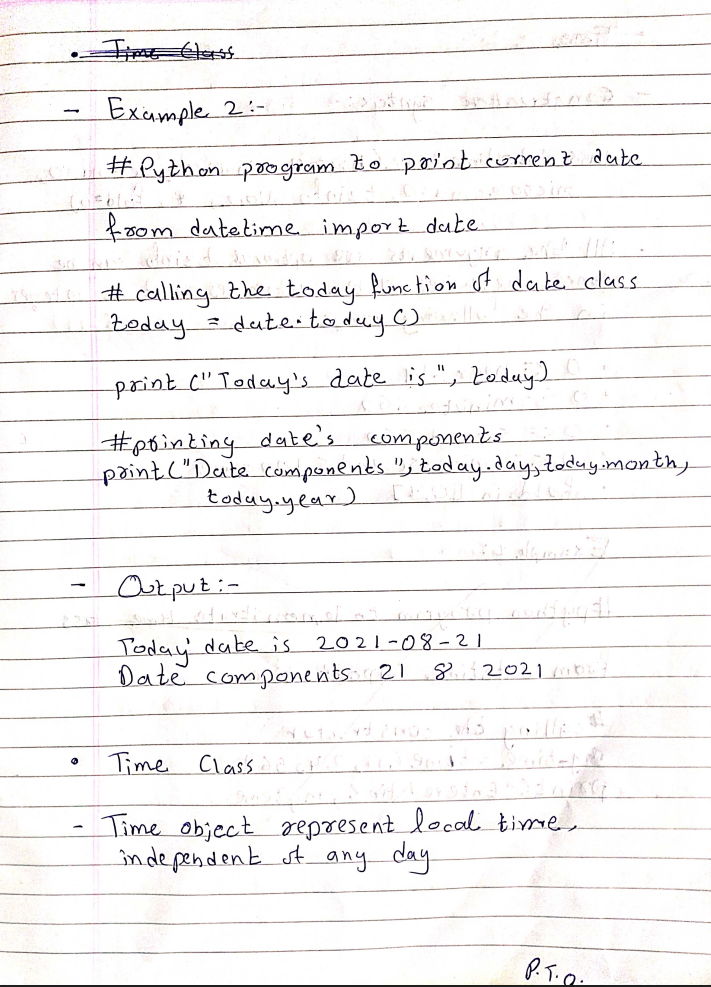 • Time Class
- Example 2:-
# Python program to print current date
from datetime import date
# calling the today function of date class
today = date.today()
print ("Today's date is", today)
#printing date's components
print("Date components", today.day, today.month,
today.year)
- Output:-
Today' date is 2021-08-21
Date components 21 8 2021
• Time Class
- Time object represent local time,
independent of any day
P.T.O.